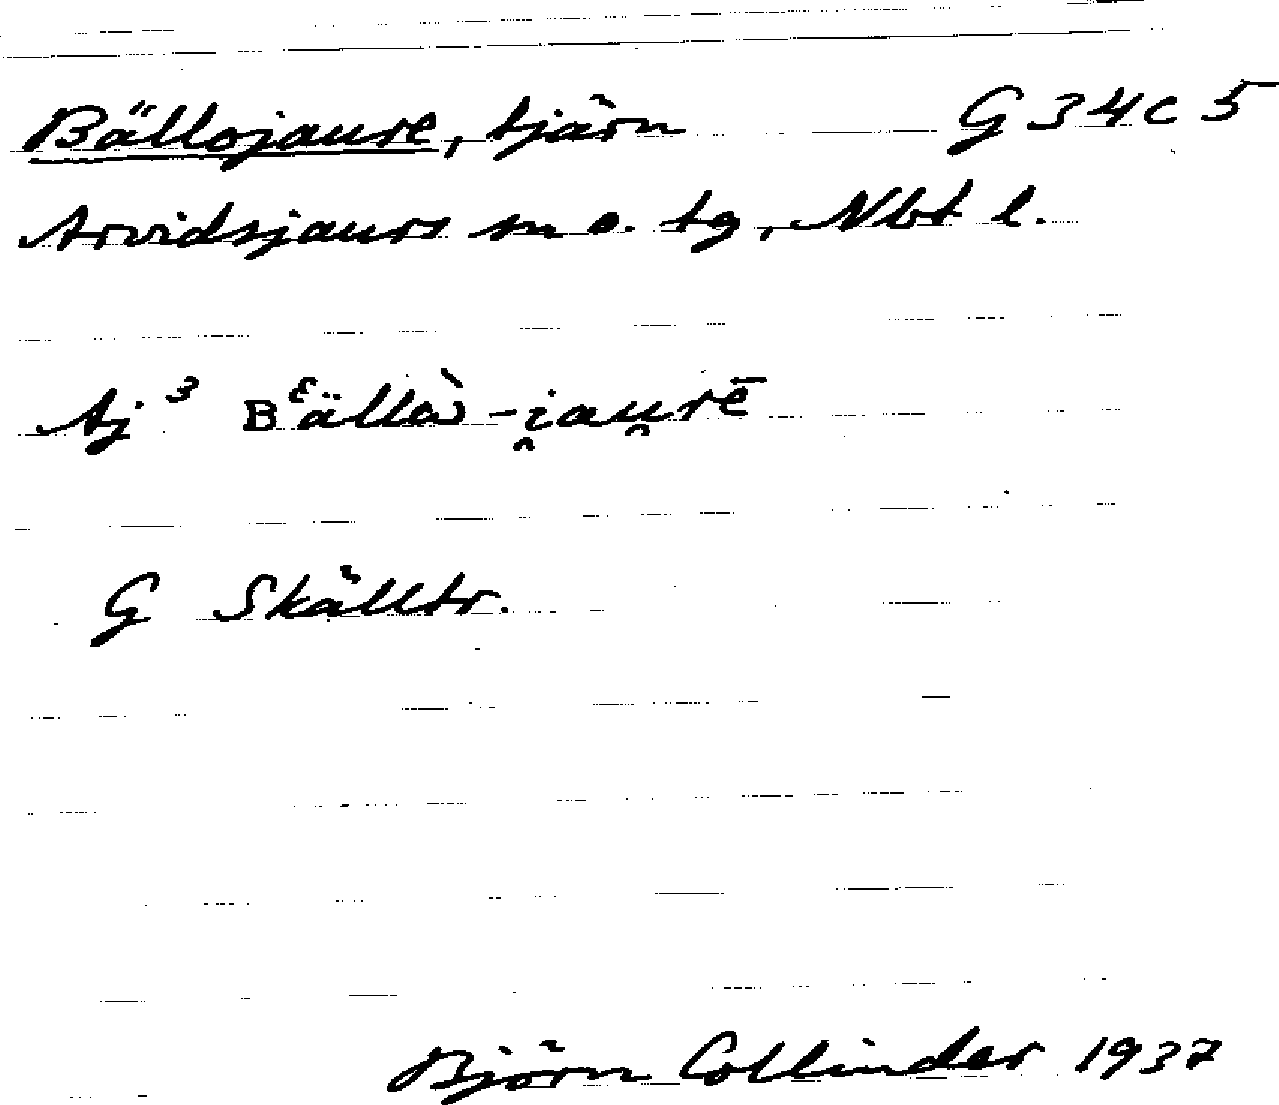 Bällojaure, tjärn G 34 c 5
Arvidsjaurs sn o. tg, Nbt l.
Aj³ Bᵋällò̀-i̯au̯rē
G Skälltr.
Björn Collinder 1937